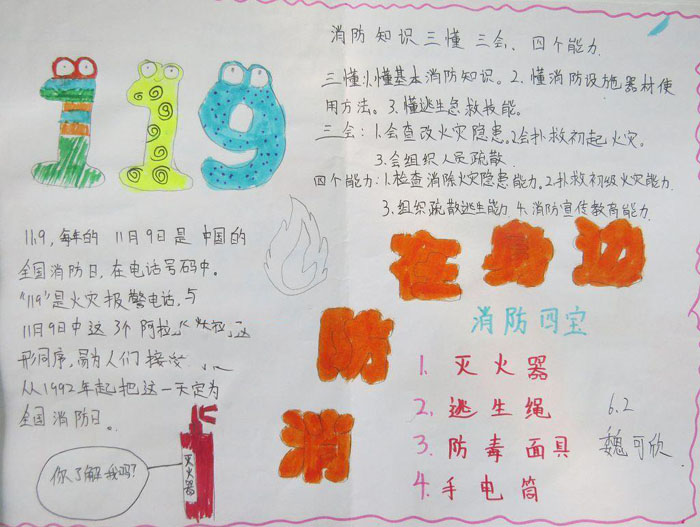 119
消防知识三懂 三会、四个能力.
三懂:1.懂基本消防知识。2.懂消防设施器材使
用方法。3.懂逃生急救技能。
三会:1.会查改火灾隐患。2.会扑救初起火灾。
3.会组织人员疏散.
四个能力:1.检查消除火灾隐患能力.2.扑救初级火灾能力.
3.组织疏散逃生能力 4.消防宣传教育能力.
11.9,每年的 11月9日是 中国的
全国消防日,在电话号码中。
"119"是火灾报警电话,与
11月9日中这3个阿拉
形同序,易为人们接
从1992年起把这一天定为
全国消防日。
消防在身边
消防四宝
1. 灭火器
2. 逃生绳
3. 防毒面具
4. 手电筒
6.2
魏可欣
灭火器
你了解我吗?